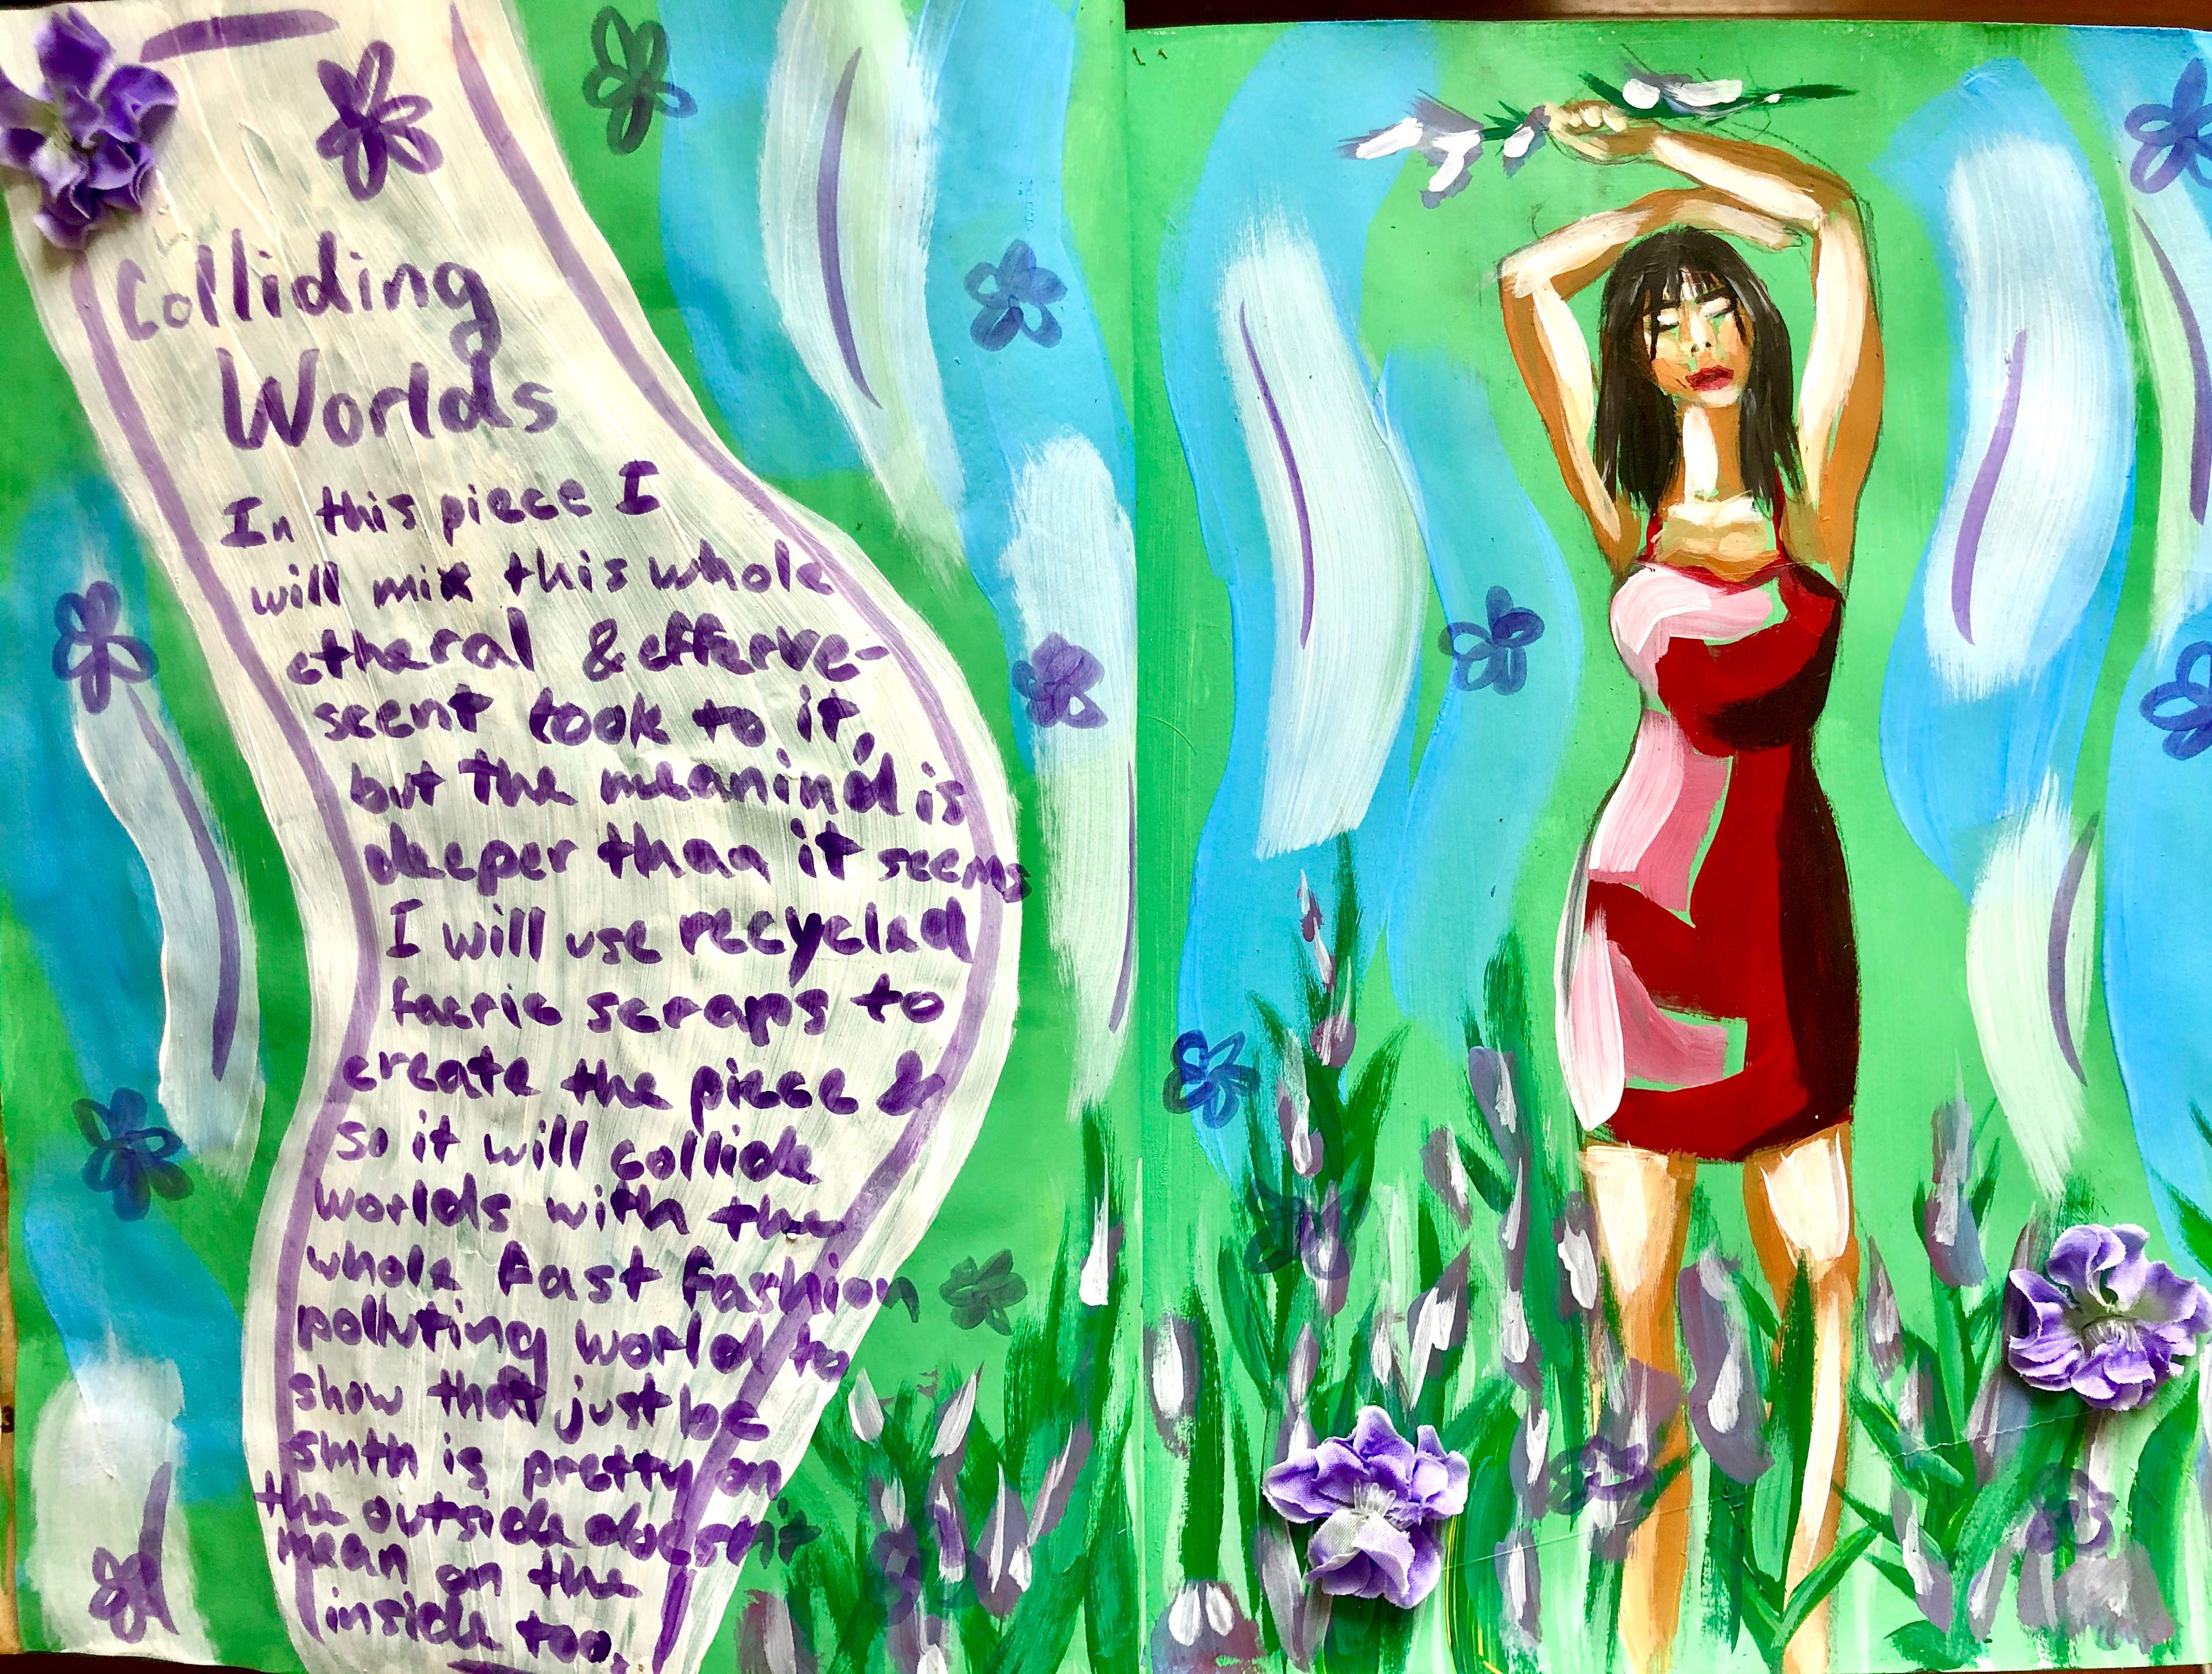 Colliding
Worlds
In this piece I
will mix this whole
etheral & efferve-
scent look to it,
but the meanind is
deeper than it seems
I will use recycled
facric scraps to
create the piece &
so it will collide
worlds with the
whole fast fashion
polluting world to
show that just bc
smth is pretty on
the outside doesn't
mean on the
inside too.